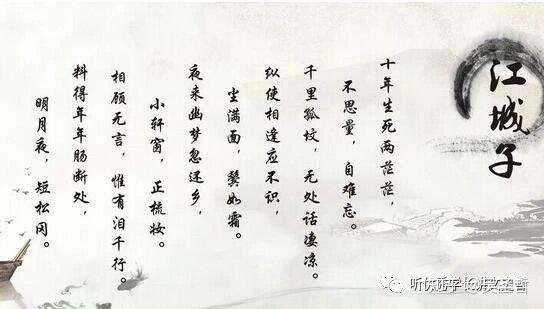 江城子
十年生死两茫茫，
不思量，自难忘。
千里孤坟，无处话凄凉。
纵使相逢应不识，
尘满面，鬓如霜。
夜来幽梦忽还乡，
小轩窗，正梳妆。
相顾无言，惟有泪千行。
料得年年肠断处，
明月夜，短松冈。